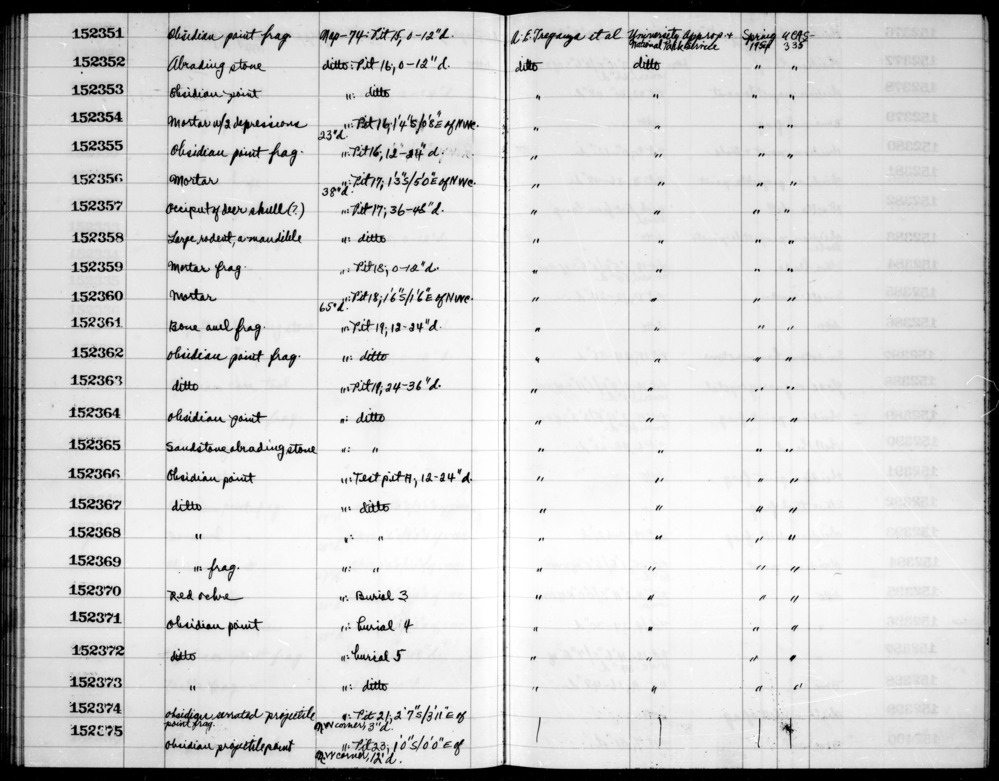 152351 Obsidian point frag. Nap-74: Pit 15, 0-12"d. A.E. Treganza et al University Approp. + National Park Service Spring 1954 UCAS-335
152352 Abrading stone ditto: Pit 16, 0-12"d. ditto ditto " "
152353 Obsidian point ": ditto " " " "
152354 Mortar w/2 depressions ": Pit 16, 1'4"S/0'8"E of NWc. 23"d. " " " "
152355 Obsidian point frag. ": Pit 16, 12-24"d. " " " "
152356 Mortar ": Pit 17, 1'3"S/5'0"E of NWc. 38"d. " " " "
152357 Occiput of deer skull (?) ": Pit 17, 36-48"d. " " " "
152358 Large rodent, a mandible ": ditto " " " "
152359 Mortar frag. ": Pit 18, 0-12"d. " " " "
152360 Mortar ": Pit 18, 1'6"S/1'6"E of NWc. 65"d. " " " "
152361 Bone awl frag. ": Pit 19, 12-24"d. " " " "
152362 Obsidian point frag. ": ditto " " " "
152363 ditto ": Pit 19, 24-36"d. " " " "
152364 Obsidian point ": ditto " " " "
152365 Sandstone abrading stone ": " " " " "
152366 Obsidian point ": Test pit A, 12-24"d. " " " "
152367 ditto ": ditto " " " "
152368 " ": " " " " "
152369 ": frag. ": " " " " "
152370 Red ochre ": Burial 3 " " " "
152371 Obsidian point ": burial 4 " " " "
152372 ditto ": burial 5 " " " "
152373 " ": ditto " " " "
152374 Obsidian serrated projectile point frag. ": Pit 21, 2'7"S/3'11"E of NW corner, 3"d.
152375 Obsidian projectile point ": Pit 23, 1'0"S/0'0"E of NW corner, 12"d.